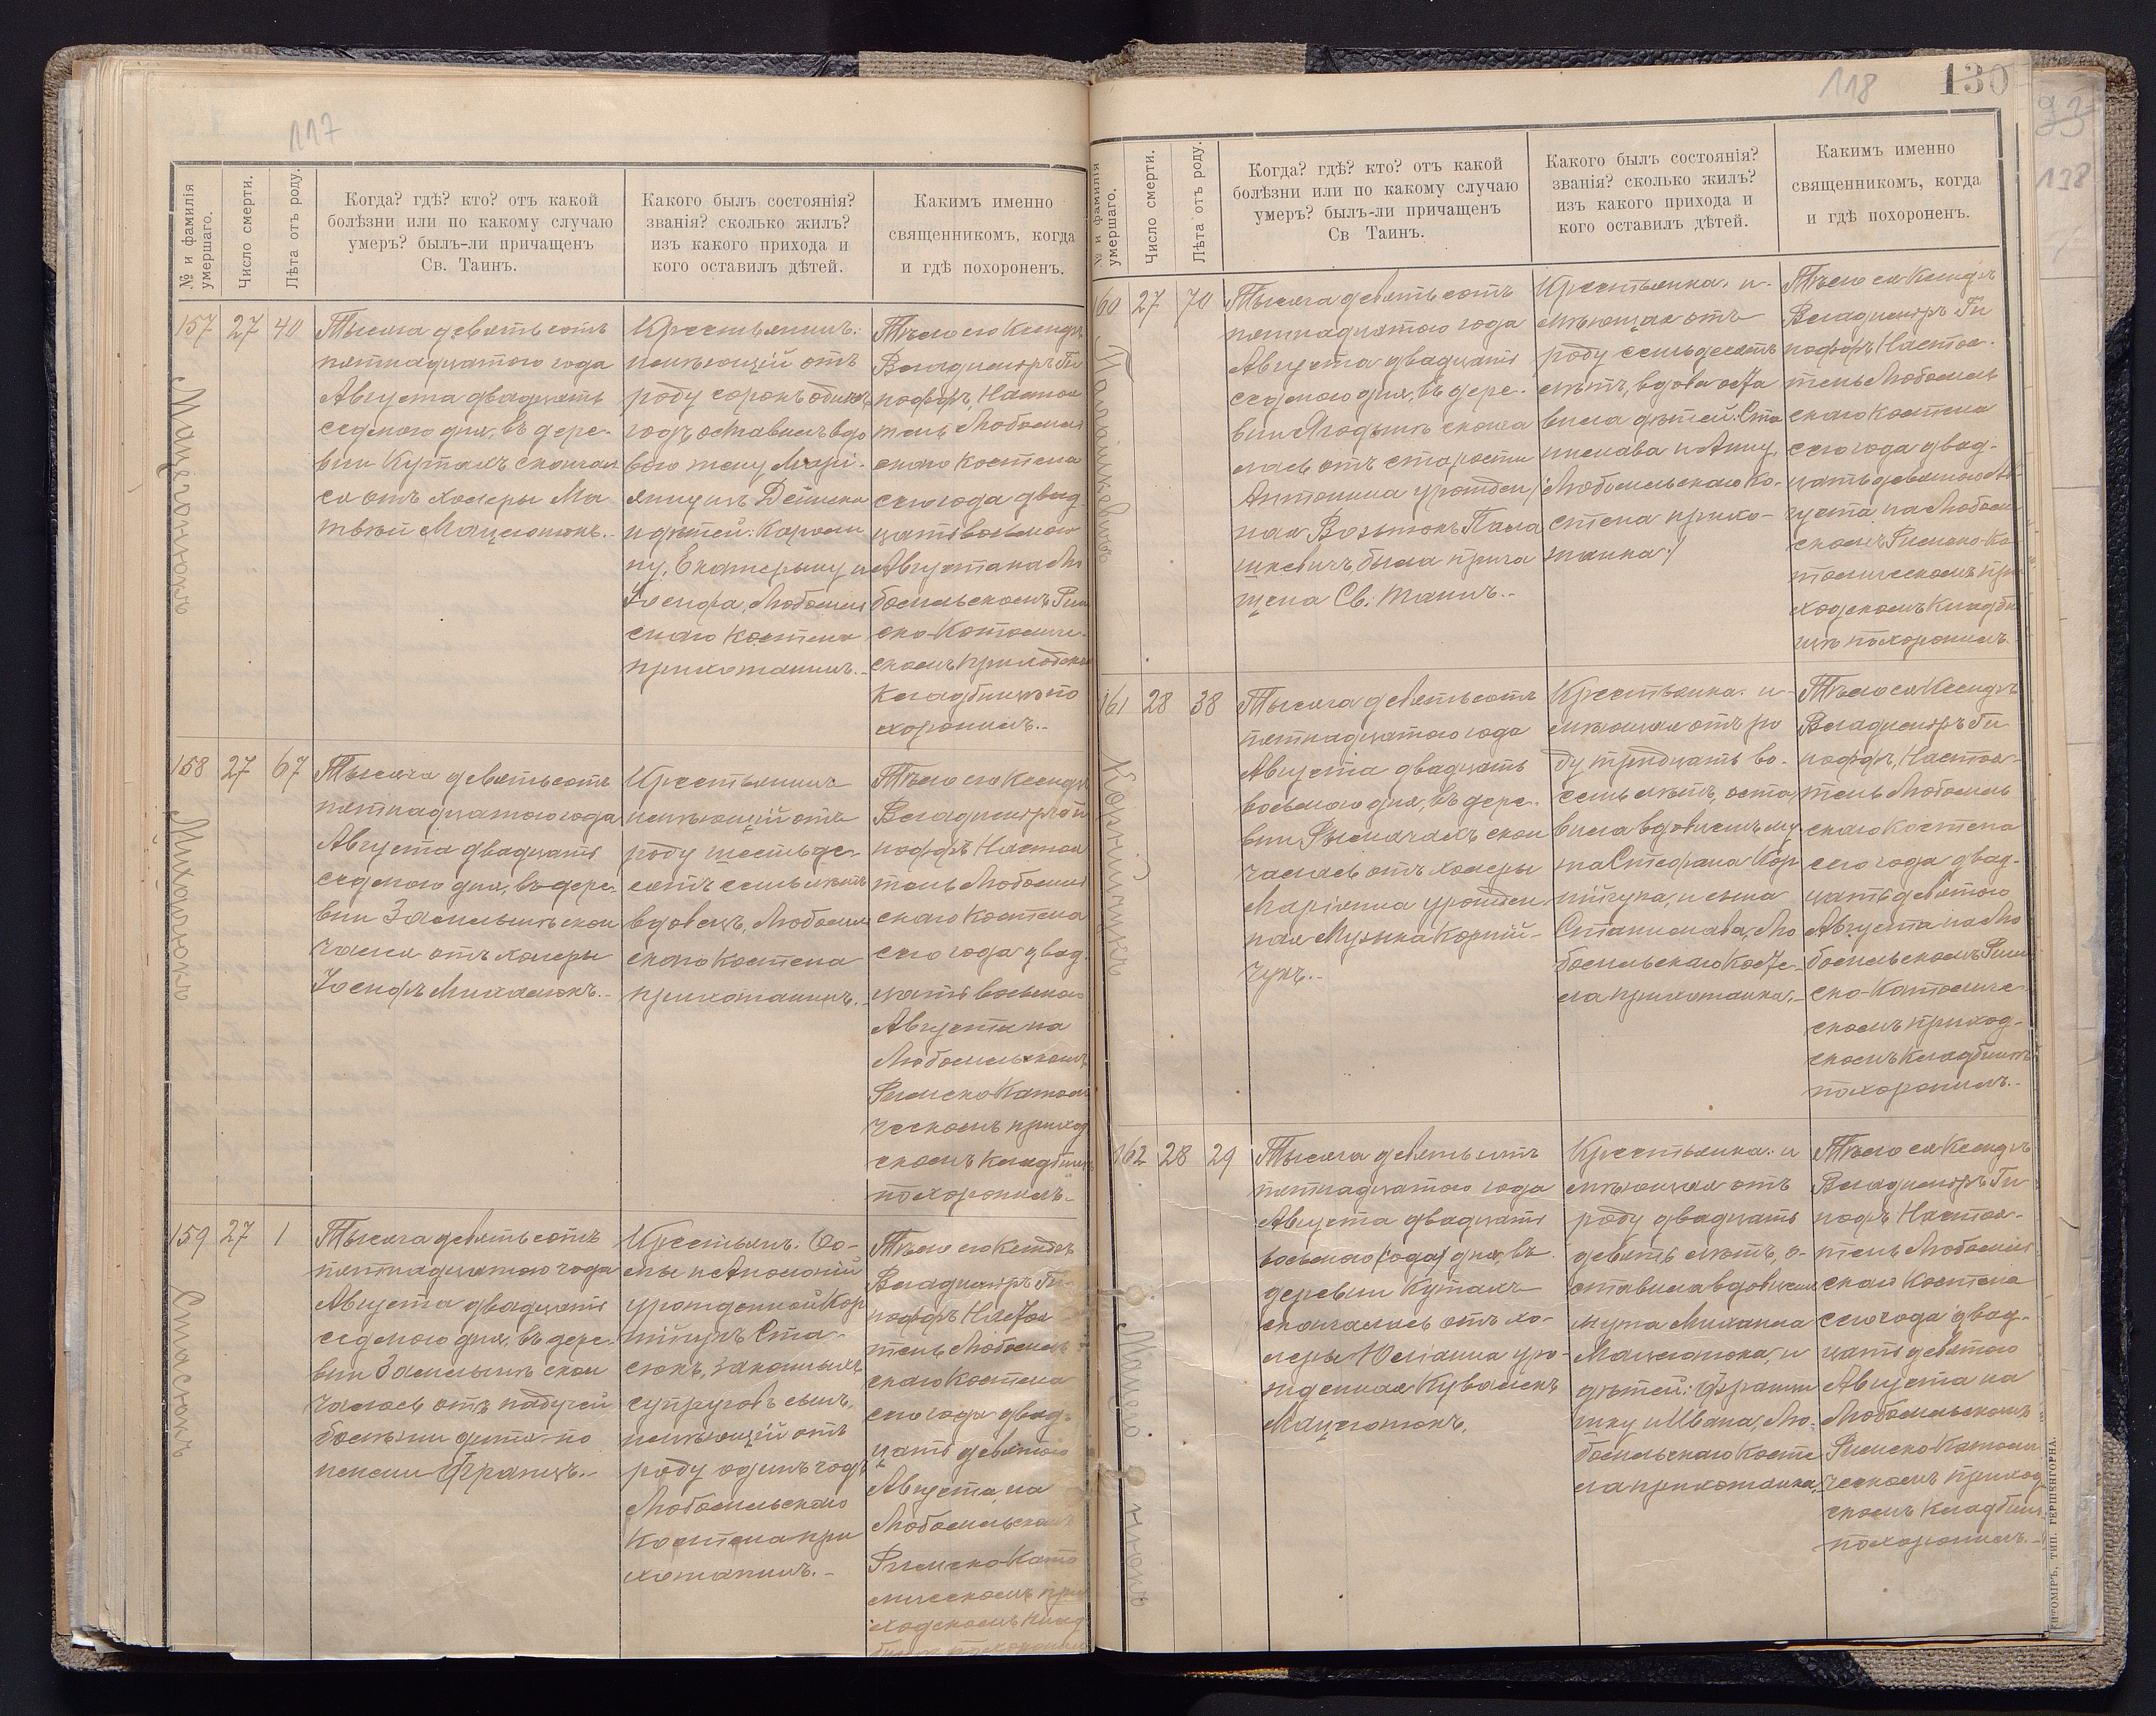 117
№ и фамилія умершаго.
Число смерти.
Лѣта отъ роду.
Когда? гдѣ? кто? отъ какой
болѣзни или по какому случаю
умеръ? былъ-ли причащенъ
Св. Таинъ.
Какого былъ состоянія?
званія? сколько жилъ?
изъ какого прихода и
кого оставилъ дѣтей.
Какимъ именно
священникомъ, когда
и гдѣ похороненъ.
157
Мацегонюкъ
27
40
Тысяча девятьсотъ
пятнадцатого года
Августа двадцать
седьмого дня, въ дере-
вни Кутахъ скончал
ся отъ холеры Ма
твѣй Мацегонюкъ.-
Крестьянинъ.
имѣющій отъ
роду сорокъ одинъ
годъ оставилъ вдо
вою жену Марі-
и дѣтей: Кароли
ну, Екатерину и
Іосифа, Любомль
скаго костела
прихожанинъ.-
Тѣло его Ксендзъ
Владиміръ Ги
ноффъ, Настоя
тель Любомль
скаго костела
сего года двад
цать восьмого
Августа на Лю
бомльскомъ Рим
ско-Католиче-
скомъ приходском
Кладбищѣ по
хоронилъ.-
158
Михалюкъ
27
67
Тысяча девятьсотъ
пятнадцатого года
Августа двадцать
седьмого дня, въ дере-
вни Замлыньѣ скон
чался отъ холеры
Іосифъ Михалюкъ.-
Крестьянинъ
имѣющій отъ
роду шестьде-
сятъ семь лѣтъ
вдовецъ, Любомль
скаго костела
прихожанинъ.-
Тѣло его Ксендзъ
Владиміръ Ги
ноффъ Настоя
тель Любомль
скаго костела
сего года двад
цать восьмого
Августа на
Любомльскомъ
Римско Католи
ческомъ приход
скомъ Кладбищѣ
похоронилъ.-
159
Стасюкъ
27
1
Тысяча девятьсотъ
пятнадцатого года
Августа двадцать
седьмого дня, въ дере-
вни Замлыньѣ скон
чалось отъ падучей
болѣзни дитя по
имени Францъ.-
Крестьянъ: Ѳо-
мы и Аполоніи
урожденной Кор
нійчукъ Ста-
сюкъ, законныхъ
супруговъ сынъ,
имѣющій отъ
роду одинъ годъ
Любомльскаго
Костела при
хожанинъ.-
Тѣло его Ксендзъ
Владиміръ Ги-
ноффъ Настоя
тель Любомль
скаго Костела
сего года двад-
цать девятого
Августа на
Любомльском
Римско-Като
лическомъ при
ходскомъ Клад
118
130
93
138
№ и фамилія умершаго.
Число смерти.
Лѣта отъ роду.
Когда? гдѣ? кто? отъ какой
болѣзни или по какому случаю
умеръ? былъ-ли причащенъ
Св Таинъ.
Какого былъ состоянія?
званія? сколько жилъ?
изъ какого прихода и
кого оставилъ дѣтей.
Какимъ именно
священникомъ, когда
и гдѣ похороненъ.
160
27
70
Тысяча девятьсотъ
пятнадцатого года
Августа двадцать
седьмого дня, въ дере-
вни Ягодынѣ сконча
лась отъ старости
Антонина урожден
ная Возьнюкъ Пала
шкевичъ была прича
щена Св. Таинъ.-
Крестьянка. и-
мѣющая отъ
роду семьдесятъ
лѣтъ, вдова оста
вила дѣтей: Ста
нислава и Анну,
Любомльскаго Ко-
стела прихо-
жанка.
Тѣло ея Ксендзъ
Владиміръ Ги
ноффъ Настоя-
тель Любомль
скаго костела
сего года двад-
цать девятого Ав
густа на Любомль
скомъ Римско-Ка
толическомъ при
ходскомъ Кладби
щѣ похоронилъ.
161
Корнійчукъ
28
38
Тысяча девятьсотъ
пятнадцатого года
Августа двадцать
восьмого дня, въ дере-
вни Рымачахъ скон
чалась отъ холеры
Маріянна урожден
ная Музыка Корній-
чукъ.-
Крестьянка. и-
мѣющая отъ ро
ду тридцать во-
семь лѣтъ, оста
вила вдовцемъ му
жа Стефана Кор
нійчука, и сына
Станислава, Лю
бомльскаго Косте-
ла прихожанка.-
Тѣло ея Ксендзъ
Владиміръ Ги
ноффъ, Настоя-
тель Любомль
скаго Костела
сего года двад-
цать девятого
Августа на Лю
бомльскомъ Рим
ско-Католиче-
скомъ приход-
скомъ Кладбищѣ
похоронилъ.-
162
Мацегонюкъ
28
29
Тысяча девятьсотъ
пятнадцатого года
Августа двадцать
восьмого (года) дня, въ
деревни Кутахъ
скончалась отъ хо-
леры Юліанна уро-
жденная Ковальскъ
Мацегонюкъ.
Крестьянка. и
мѣющая отъ
роду двадцать
девять лѣтъ, о-
ставила вдовцемъ
мужа Михаила
Мацегонюка, и
дѣтей: Франци
шку и Ивана, Лю-
бомльскаго Косте
ла прихожанка.
Тѣло ея Ксендзъ
Владиміръ Ги
нофъ Настоя-
тель Любомль
скаго Костела
сего года двад-
цать девятого
Августа на
Любомльскомъ
Римско Католи
ческомъ приход
скомъ Кладбищѣ
похоронилъ.-
ЖИТОМІРЪ, ТИП. ГЕРШЕНГОРНА.